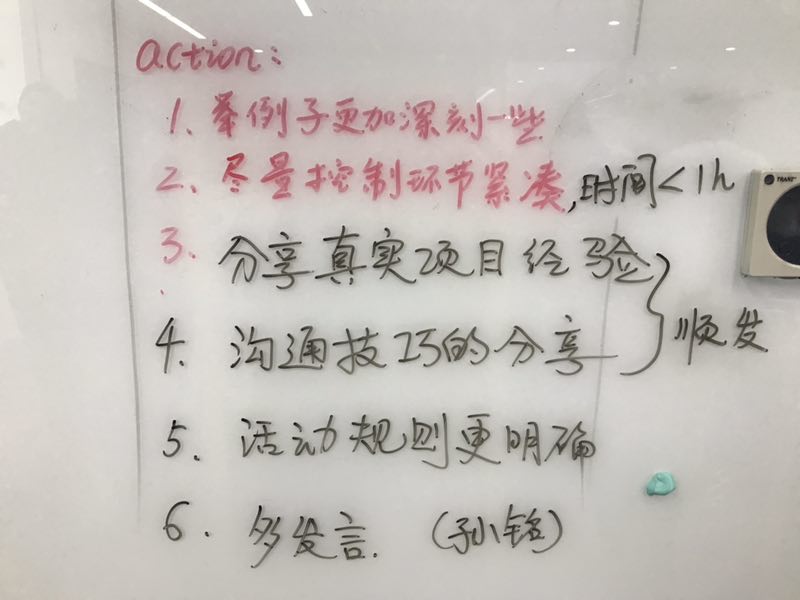 action:
1. 举例子更加深刻一些
2. 尽量控制环节紧凑,时间<1h
3. 分享真实项目经验
4. 沟通技巧的分享
顺发
5. 活动规则更明确
6. 多发言. (孙小铭)